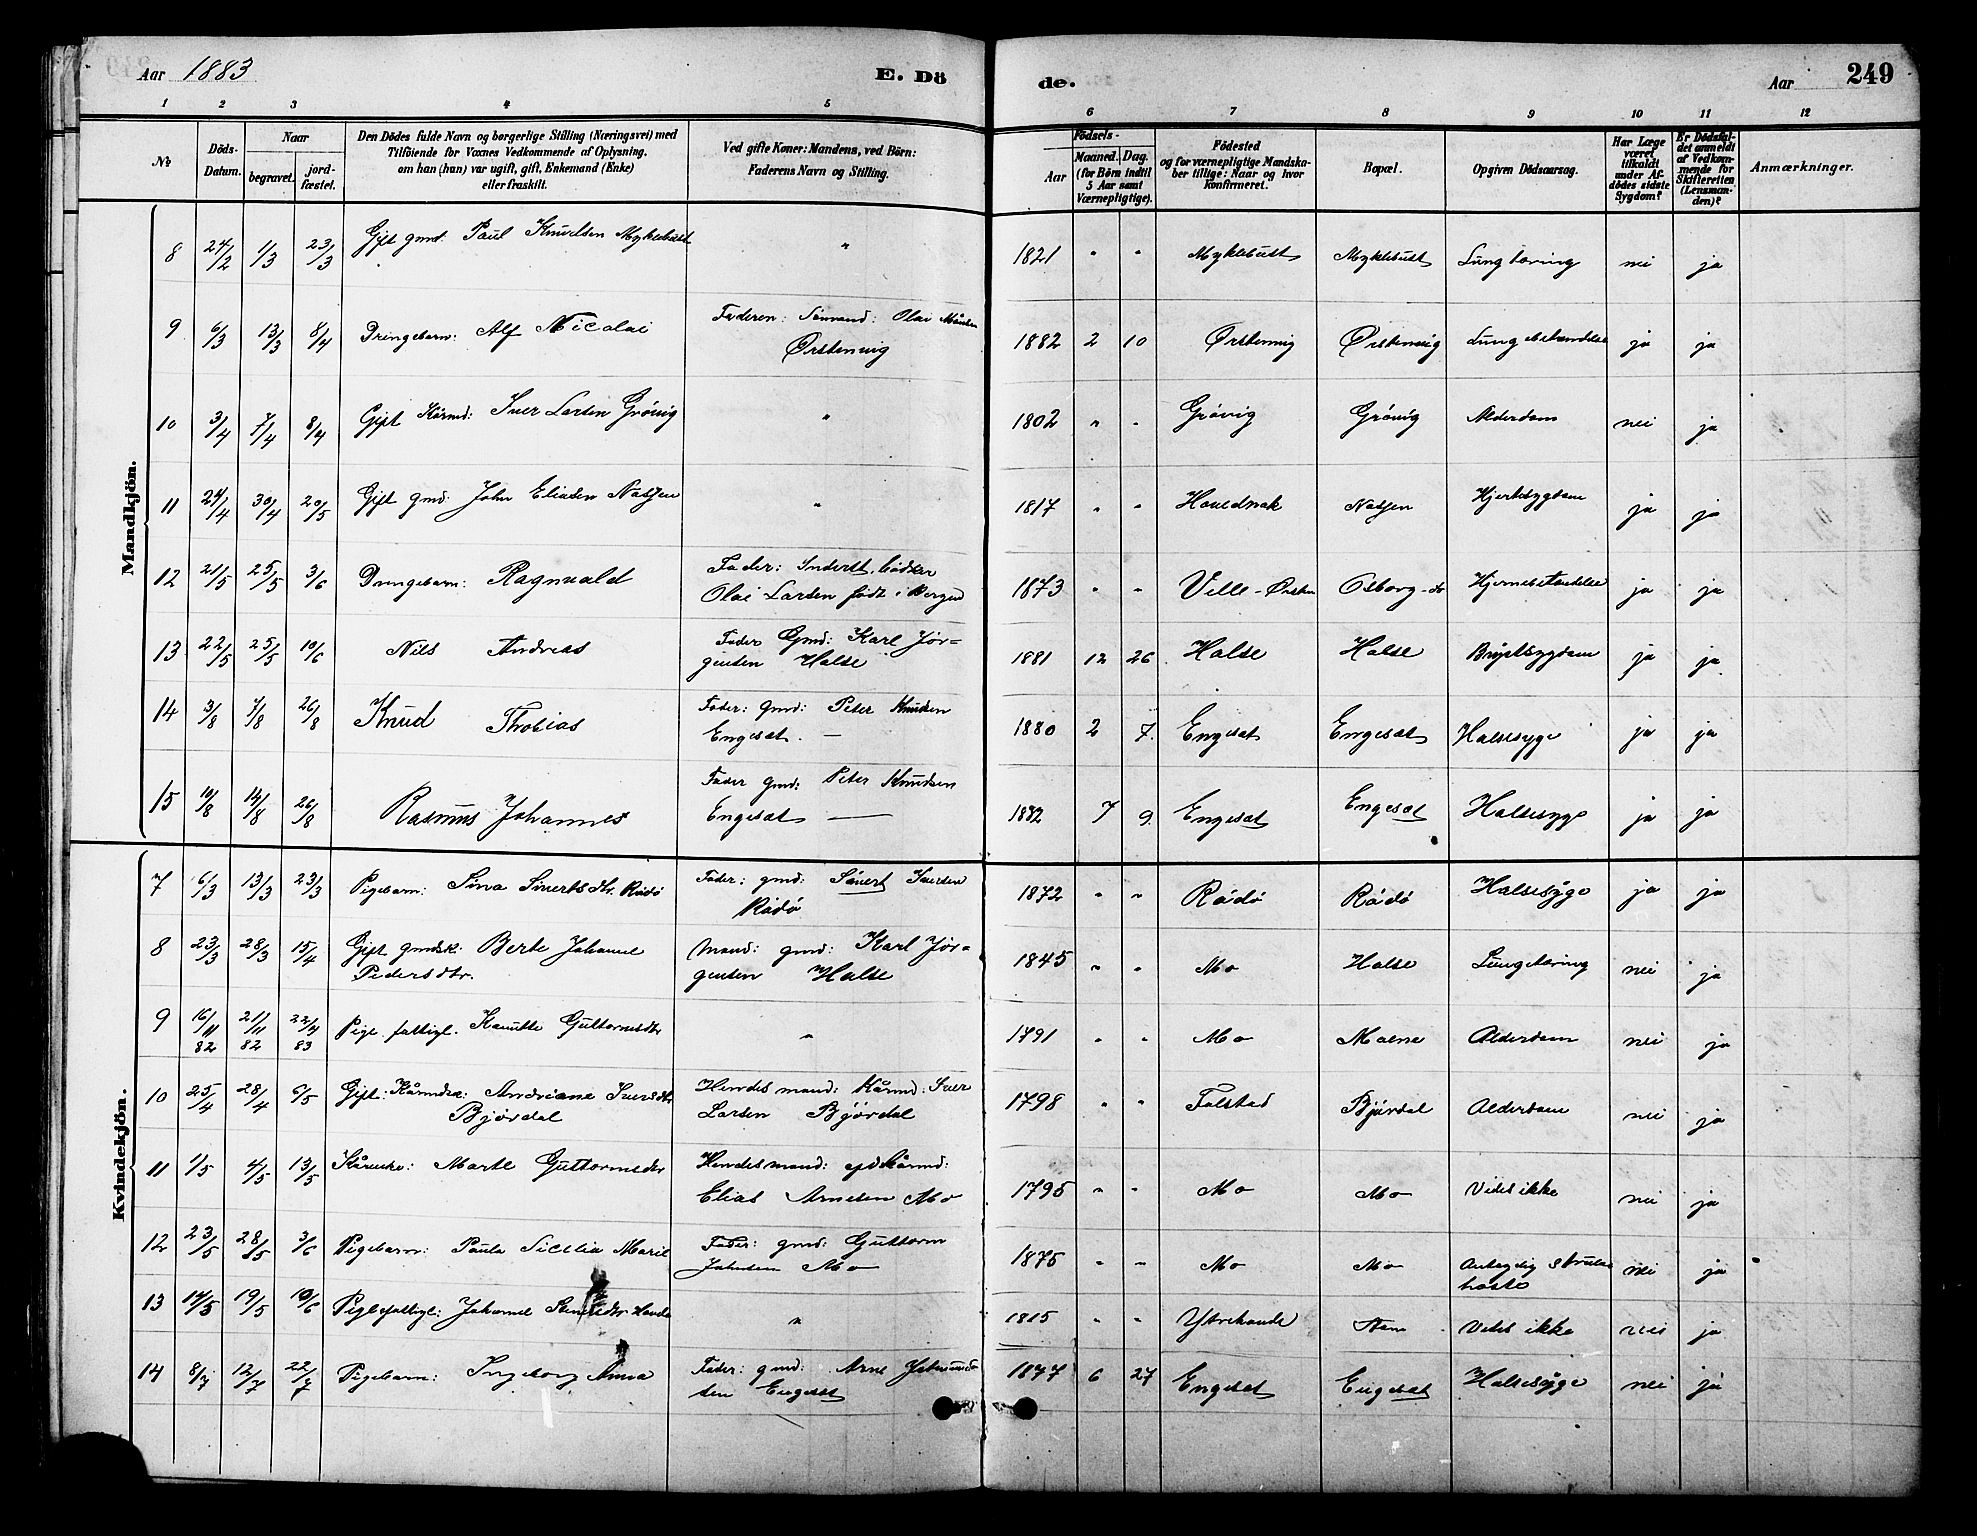 Aar 1883
E. Dö
de.
Aar
249
1 2 3 4 5 6 7 8 9 10 11 12
No
Döds-
Datum.
Naar
begravet.
jord-
fæstet.
Den Dödes fulde Navn og borgerlige Stilling (Næringsvei) med
Tilföiende for Voxnes Vedkommende af Oplysning,
om han (hun) var ugift, gift, Enkemand (Enke)
eller fraskilt.
Ved gifte Koner: Mandens, ved Börn:
Faderens Navn og Stilling.
Födsels-
Aar
Maaned. Dag.
(for Börn indtil
5 Aar samt
Værnepligtige).
Födested
og for værnepligtige Mandska-
ber tillige: Naar og hvor
konfirmeret.
Bopæl.
Opgiven Dödsaarsag.
Har Læge
været
tilkaldt
under Af-
dödes sidste
Sygdom?
Er Dödsfal-
det anmeldt
af Vedkom-
mende for
Skifteretten
(Lensman-
den)?
Anmærkninger.
Mandkjön.
8 24/2 1/3 23/3 Gift gmd: Paul Knudsen Myklebust " 1821 " " Myklebust Myklebust Lungtæring nei ja
9 6/3 13/3 8/4 Drengebarn: Alf Nicolai Faderen: Sömand: Olai
Ørstenvig 1882 2 10 Ørstenvig Ørstenvig Lungebetændelse ja ja
10 3/4 7/4 8/4 Gift Kårmd: Iver Larsen Grövig " 1802 " " Grövig Grövig Alderdom nei ja
11 24/4 30/4 20/5 Gift gmd: John Eliasen " 1817 " " Hovdenak Hjertesygdom ja ja
12 21/5 25/5 3/6 Drengebarn: Ragnvald Fader: Inderst, bödker
Olai Larsen födt i Bergen 1873 " " Velle-Ørsten Osborg Hjernebetændelse ja ja
13 22/5 25/5 10/6 Nils Andreas Fader Gmd: Karl Jör-
gensen Halse 1881 12 26 Halse Halse Brystsygdom ja ja
14 3/8 7/8 26/8 Knud Thobias Fader: gmd: Peter Knudsen
Engeset. — 1880 2 7. Engeset Engeset Halssyge ja ja
15 10/8 14/8 26/8 Rasmus Johannes Fader gmd: Peter Knudsen
Engeset — 1882 7 9. Engeset Engeset Halssyge ja ja
Kvindekjön.
7 6/3 13/3 23/3 Pigebarn: Sina Siverts dtr. Rådö Fader: gmd: Sivert Iversen
Rådö 1872 " " Rådö Rådö Halssyge ja ja
8 23/3 28/3 15/4 Gift gmdsk: Berte Johanne
Peders dtr. Mand: gmd: Karl Jör-
gensen Halse 1845 " " Mo Halse Lungetæring nei ja
9 16/11 82 21/11 82 22/4 83 Pige fattigl. Guttormsdtr " 1791 " " Mo Alderdom nei ja
10 25/4 28/4 6/5 Gift: Andriane Iversdtr
Björdal Hendes mand: Kårmd: Iver
Larsen Björdal 1798 " " Folstad Björdal Alderdom nei ja
11 1/5 4/5 13/5 Marte Guttormsdtr Hendes mand: Kårmd:
Elias Arnesen Mo 1795 " " Mo Mo Vides ikke nei ja
12 23/5 28/5 3/6 Pigebarn: Paula Sicelia Marie Fader: gmd: Guttorm
Johnsen Mo 1875 " " Mo Mo Antagelig strube
hoste nei ja
13 14/5 19/5 10/6 Johanne " 1815 " " Vides ikke nei ja
14 8/7 12/7 22/7 Pigebarn: Ingeborg Anna Fader: gmd: Arne
sen Engeset 1877 6 27 Engeset Engeset Halssyge nei ja